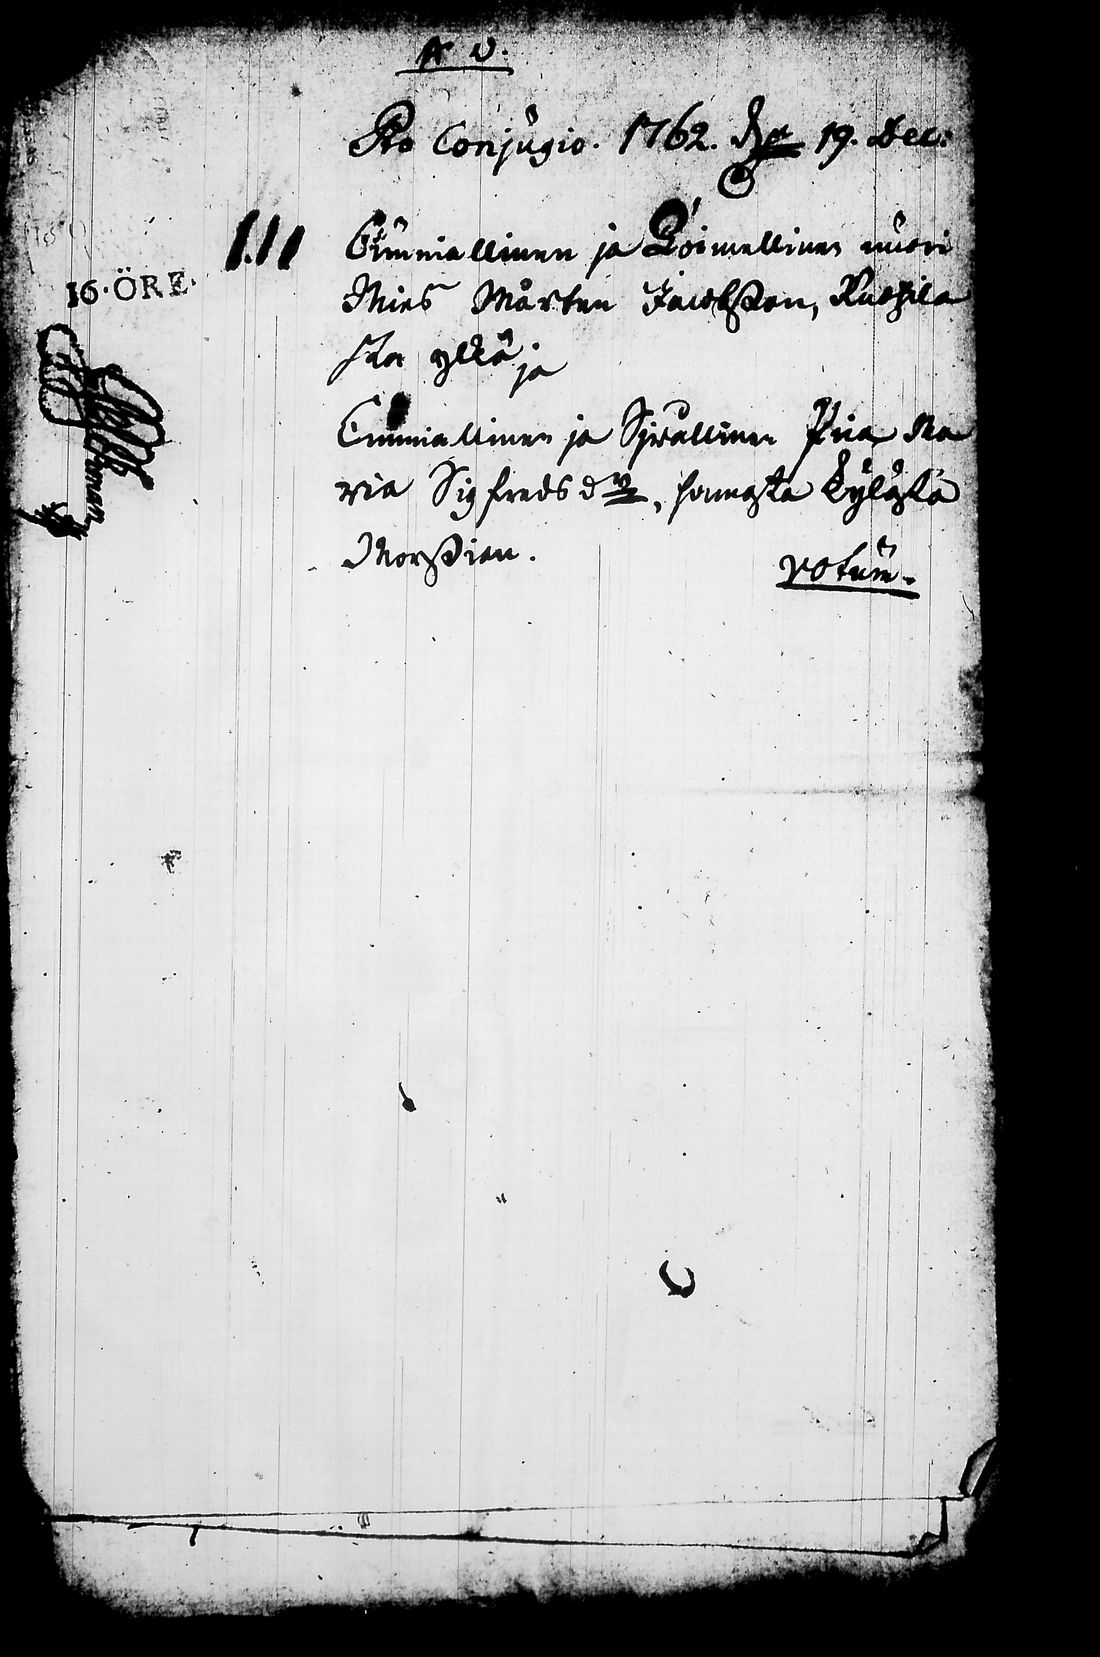 A. D.
Pro Conjugio. 1762. d. 19. Dec:
1.11
16·ÖRE·
Cunniallinen ja Toimellinen nuori
Mies Mårten Jacobsson, Kuckila
sta ylkä ja
Cunniallinen ja Sjwällinen Pica Ma
ria Sigfredsdr, samasta kyläsä
Morssian.
votum.